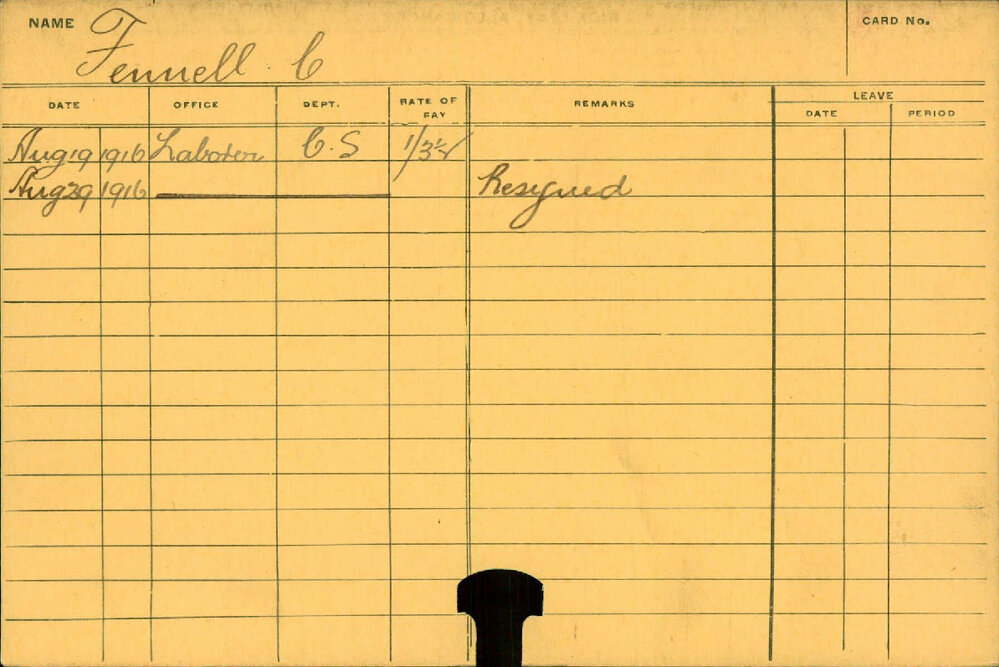 NAME Fennell C CARD No.
DATE OFFICE DEPT. RATE OF PAY REMARKS LEAVE
DATE PERIOD
Aug 19 1916 Laborer C.S 1/3½
Aug 29 1916 Resigned